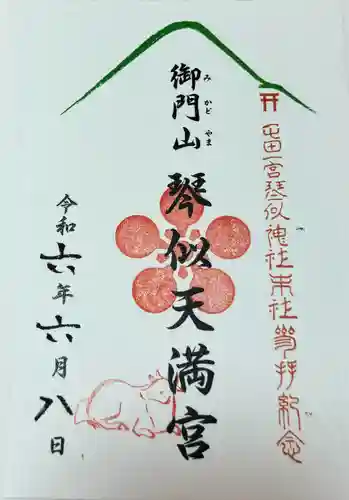 屯田一宮琴似神社末社参拝紀念
御門山
みかどやま
琴似天満宮
令和六年六月八日